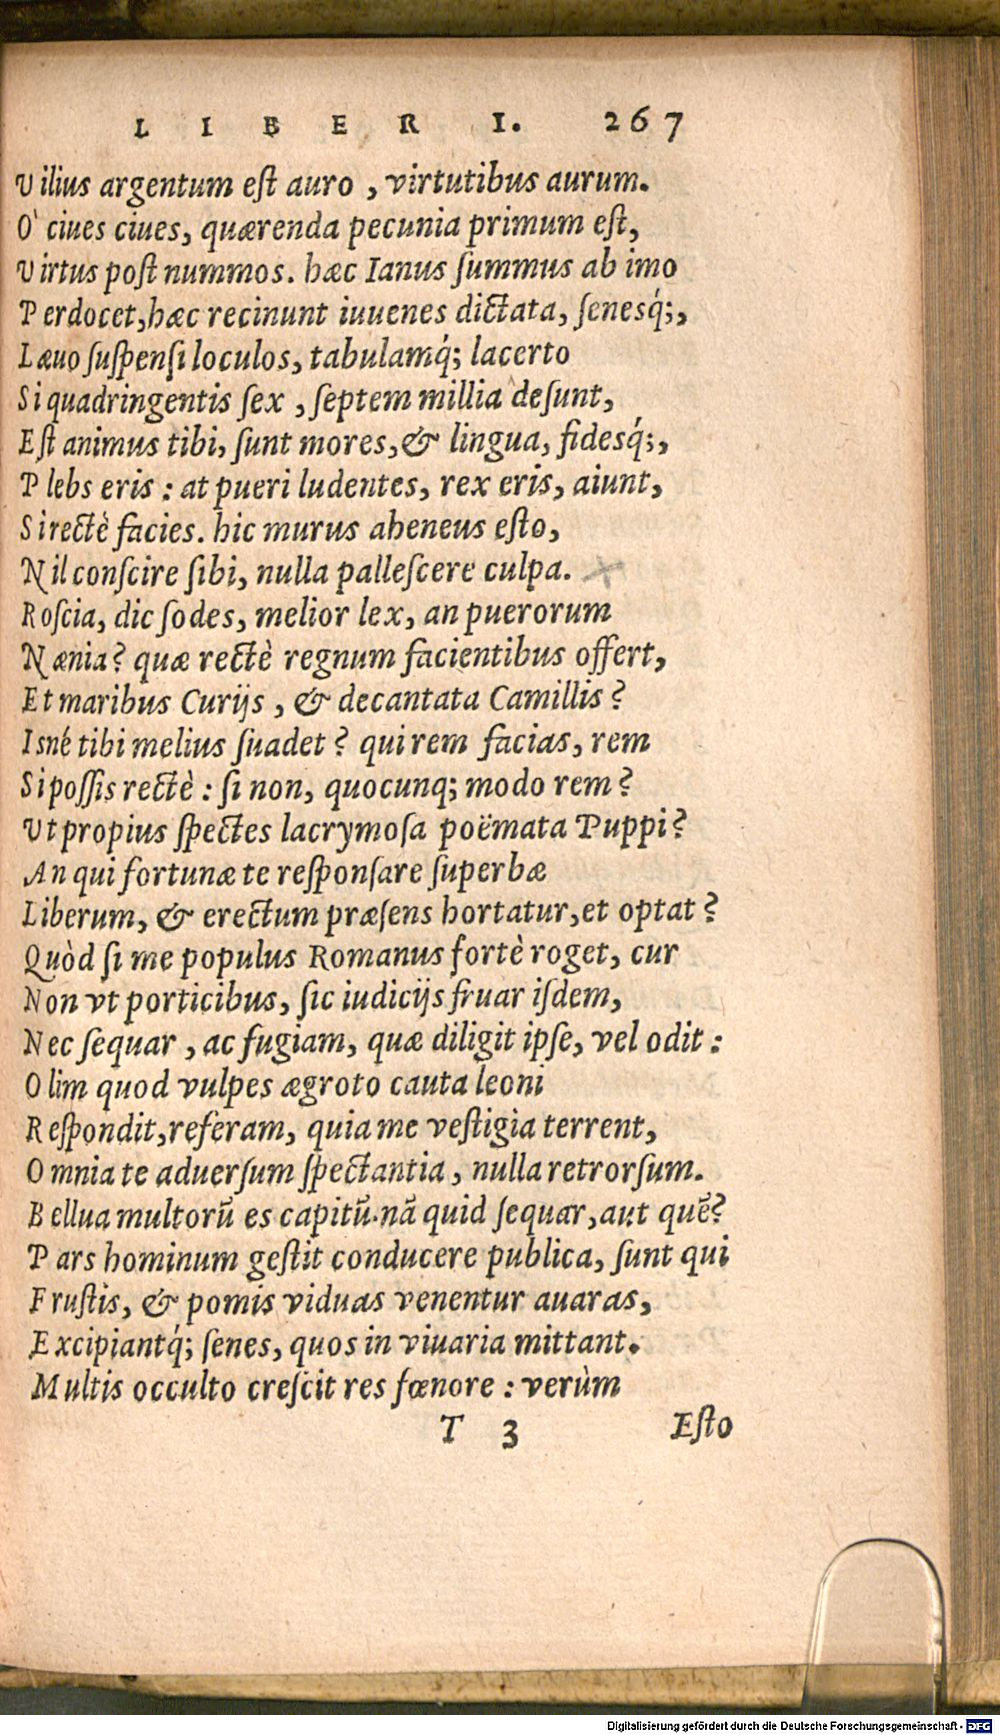 LIBER I. 267
Vilius argentum est auro, virtutibus aurum.
O' ciues ciues, quærenda pecunia primum est,
Virtus post nummos. hæc Ianus summus ab imo
Perdocet, hæc recinunt iuuenes dictata, senesq́;,
Læuo suspensi loculos, tabulamq́; lacerto
Si quadringentis sex, septem millia desunt,
Est animus tibi, sunt mores, & lingua, fidesq́;,
Plebs eris: at pueri ludentes, rex eris, aiunt,
Si rectè facies. hic murus aheneus esto,
Nil conscire sibi, nulla pallescere culpa.
Roscia, dic sodes, melior lex, an puerorum
Nænia? quæ rectè regnum facientibus offert,
Et maribus Curijs, & decantata Camillis?
Isné tibi melius suadet? qui rem facias, rem
Si possis rectè: si non, quocunq; modo rem?
Vt propius spectes lacrymosa poëmata Puppi?
An qui fortunæ te responsare superbæ
Liberum, & erectum præsens hortatur, et optat?
Quòd si me populus Romanus fortè roget, cur
Non vt porticibus, sic iudicijs fruar isdem,
Nec sequar, ac fugiam, quæ diligit ipse, vel odit:
Olim quod vulpes ægroto cauta leoni
Respondit, referam, quia me vestigia terrent,
Omnia te aduersum spectantia, nulla retrorsum.
Bellua multorū es capitū. nā quid sequar, aut quē?
Pars hominum gestit conducere publica, sunt qui
Frustis, & pomis viduas venentur auaras,
Excipiantq́; senes, quos in viuaria mittant.
Multis occulto crescit res fœnore: verùm
T 3 Esto
Digitalisierung gefördert durch die Deutsche Forschungsgemeinschaft - DFG